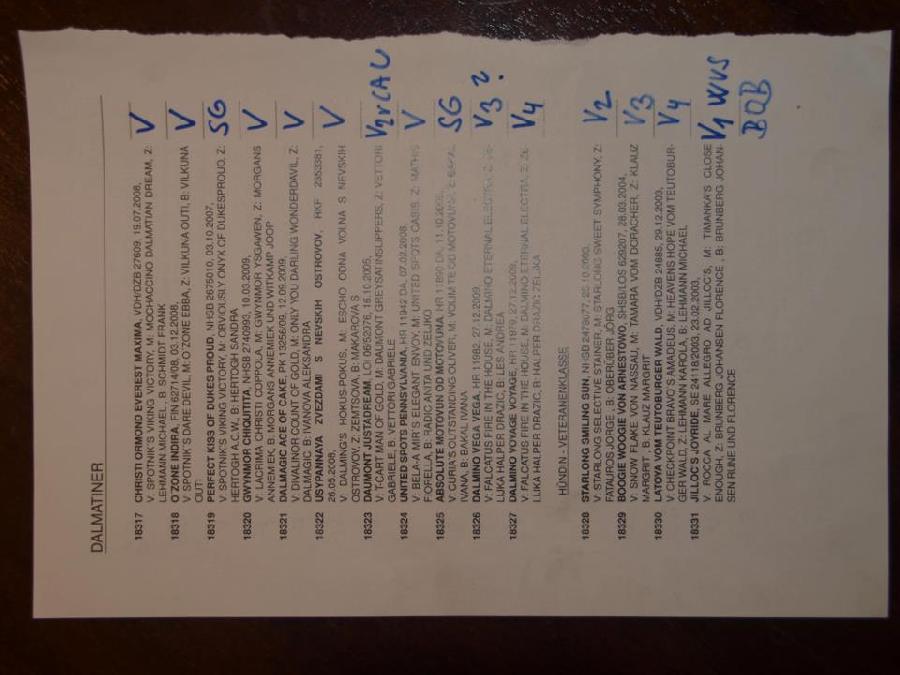 DALMATINER
18317 CHRISTI ORMOND EVEREST MAXIMA, VDH/DZB 27609, 19.07.2008, V
V: SPOTNIK'S VIKING VICTORY, M: MOCHACCINO DALMATIAN DREAM, Z:
LEHMANN MICHAEL, B: SCHMIDT FRANK
18318 O'ZONE INDIRA, FIN 62714/08, 03.12.2008, V
V: SPOTNIK'S DARE DEVIL, M: O'ZONE EBBA, Z: VILKUNA OUTI, B: VILKUNA
OUTI
18319 PERFECT KISS OF DUKES PROUD, NHSB 2675010, 03.10.2007, SG
V: SPOTNIK'S VIKING VICTORY, M: ORVIOUSLY ONYK OF DUKESPROUD, Z:
HERTOGH A.C.W., B: HERTOGH SANDRA
18320 GWYNMOR CHIQUITITA, NHSB 2740993, 10.03.2009, V
V: LACRIMA CHRISTI COPPOLA, M: GWYNMOR YSGAWEN, Z: MORGANS
ANNEMIEK, B: MORGANS ANNEMIEK UND WITKAMP JOOP
18321 DALMAGIC ACE OF CAKE, PK 13256/09, 12.09.2009, V
V: DIVALINDOR COUNT OF GOLD, M: ONLY YOU DARLING WONDERDAVIL, Z:
DALMAGIC, B: IVANOVA ALEKSANDRA
18322 USYPANNAYA ZVEZDAMI S NEVSKIH OSTROVOV, RKF 2353381, V
26.05.2008,
V: DALMING'S HOKUS-POKUS, M: ESCHO ODNA VOLNA S NEVSKIH
OSTROVOV, Z: ZEMTSOVA, B: MAKAROVA S
18323 DAUMONT JUSTADREAM, LOI 06/52076, 16.10.2005, V2 rCACV
V: T-CART MAN OF GOLD, M: DALMONT GREYSATINSLIPPERS, Z: VETTORI
GABRIELE, B: VETTORI GABRIELE
18324 UNITED SPOTS PENNSYLVANIA, HR 11942 DA, 07.02.2008, V
V: BELA-A MIR'S ELEGANT ENVOY, M: UNITED SPOTS CABIS, Z: MATHIS
FORELLA, B: RADIC ANITA UND ZELJKO
18325 ABSOLUTE MOTOVUN OD MOTOVUNA, HR 11890 DA, 11.10.2008, SG
V: GURIA'S OUTSTANDING OLIVER, M: VOLIM TE OD MOTOVUNA, Z: BAKAL
IVANA, B: BAKAL IVANA
18326 DALMINO VEGA VEGA, HR 11982, 27.12.2009, V3 ?
V: FALCATUS FIRE IN THE HOUSE, M: DALMINO ETERNAL ELECTRA, Z:
LUKA HALPER DRAZIC, B: LES ANDREA
18327 DALMINO VOYAGE VOYAGE, HR 11979, 27.12.2009, V4
V: FALCATUS FIRE IN THE HOUSE, M: DALMINO ETERNAL ELECTRA, Z:
LUKA HALPER DRAZIC, B: HALPER DRAZIC ZELJKA
HÜNDIN - VETERANENKLASSE
18328 STARLONG SMILING SUN, NHSB 2473677, 25.10.2003, V2
V: STARLONG SELECTIVE STAINER, M: STARLONG SWEET SYMPHONY, Z:
FATAUROS JORGE, B: OBERLJER JÖRG
18329 BOOGIE WOOGIE VON ARNESTOWO, SHSB/LOS 629207, 28.03.2004, V3
V: SNOW FLAKE VON NASSAU, M: TAMARA VOM DORACHER, Z: KLAUZ
MARGRIT, B: KLAUZ MARGRIT
18330 LATOYA VOM TEUTOBURGER WALD, VDH/DZB 24885, 29.12.2003, V4
V: CHECKPOINT BRAVO'S AMADEUS, M: HEAVENS HOPE VOM TEUTOBUR-
GER WALD, Z: LEHMANN KAROLA, B: LEHMANN MICHAEL
18331 JILLOC'S JOYRIDE, SE 24118/2003, 23.02.2003, V1 WVS
V: ROCCA AL MARE ALLEGRO AD JILLOC'S, M: TIMANKA'S CLOSE BOB
ENOUGH, Z: BRUNBERG JOHANSEN FLORENCE, B: BRUNBERG JOHAN-
SEN RUNE UND FLORENCE